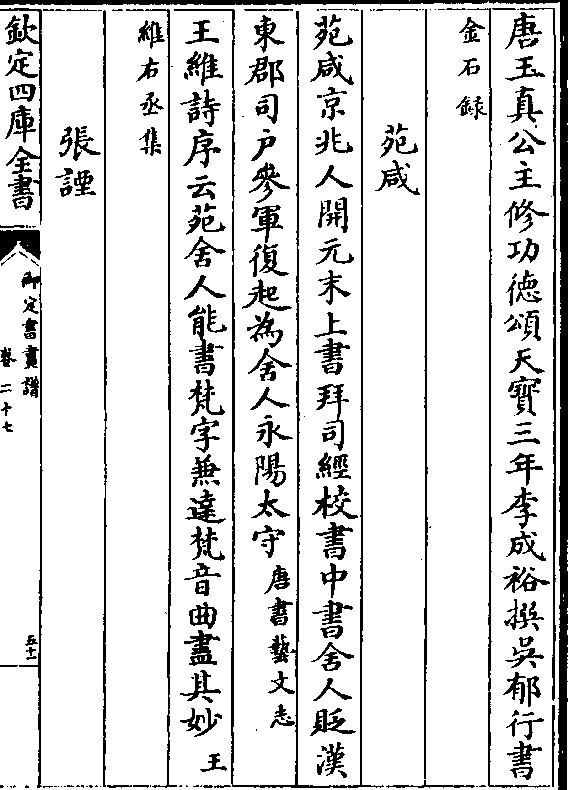 唐玉真公主修功徳頌天寶三年李成裕撰吳郁行書
金石録
苑咸
苑咸京兆人開元末上書拜司經校書中書舍人貶漢
東郡司户參軍復起為舍人永陽太守唐書藝文志
王維詩序云苑舍人能書梵字兼達梵音曲盡其妙王
維右丞集
張諲
欽定四庫全書
御定書畫譜
卷二十七
五十一